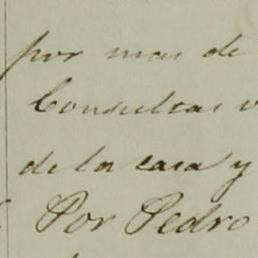 por mas de
Consultas v
de la casa y
Por Pedro